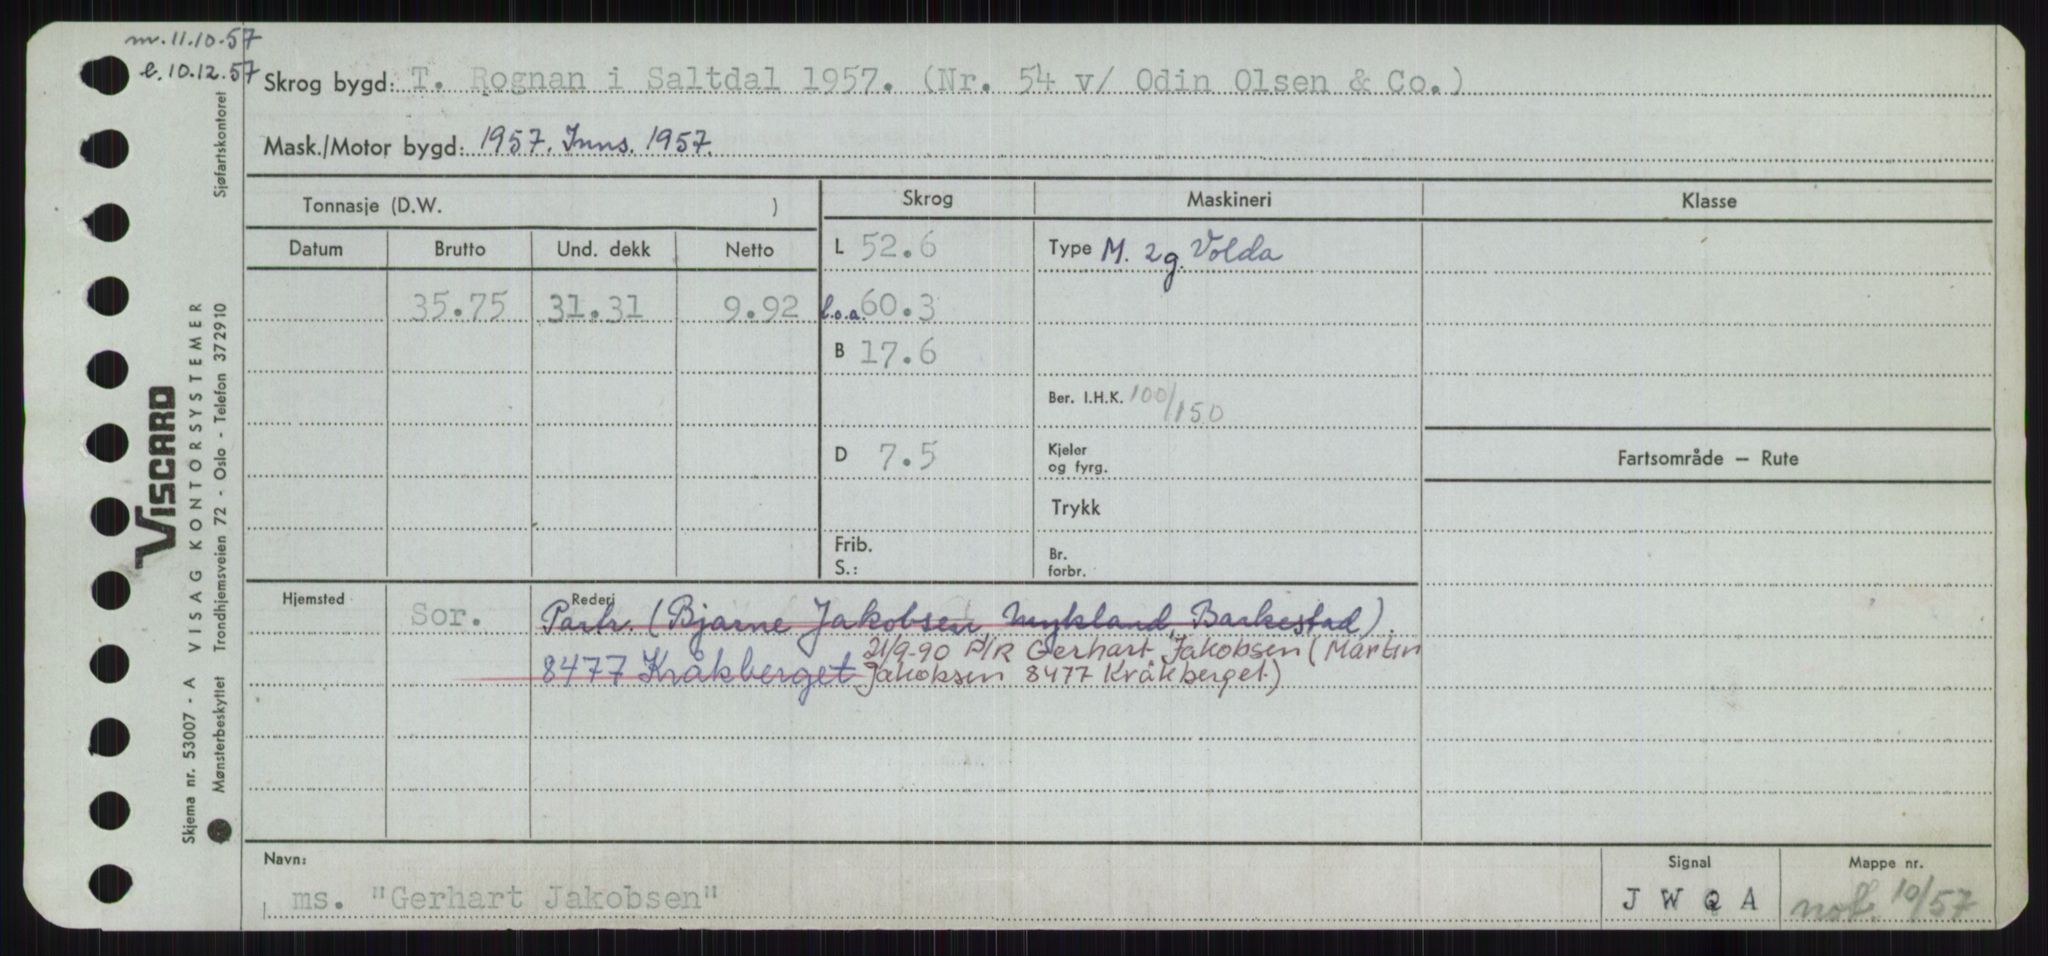 m. 11.10.57
e. 10.12.57
Skrog bygd: T. Rognan i Saltdal 1957. (Nr. 54 v/ Odin Olsen & Co.)
Mask./Motor bygd: 1957. Inns. 1957.
Tonnasje (D.W. )
Skrog
Maskineri
Klasse
Datum
Brutto
Und. dekk
Netto
L 52.6
Type M. 2g. Volda
35.75 31.31 9.92
l.o.a. 60.3
B 17.6
Ber. I.H.K. 100/150
D 7.5
Kjeler
og fyrg.
Fartsområde — Rute
Trykk
Frib.
S.:
Br.
forbr.
Hjemsted
Sor.
Rederi
Partr. (Bjarne Jakobsen Nykland, Barkestad).
21/9-90 P/R Gerhart Jakobsen (Martin
8477 Kråkberget Jakobsen 8477 Kråkberget.)
Navn:
ms. "Gerhart Jakobsen"
Signal
J W Q A
Mappe nr.
not. 10/57
Sjøfartskontoret
VISCARD
VISAG KONTORSYSTEMER
Trondhjemsveien 72 - Oslo - Telefon 372910
Skjema nr. 53007 - A
Mønsterbeskyttet